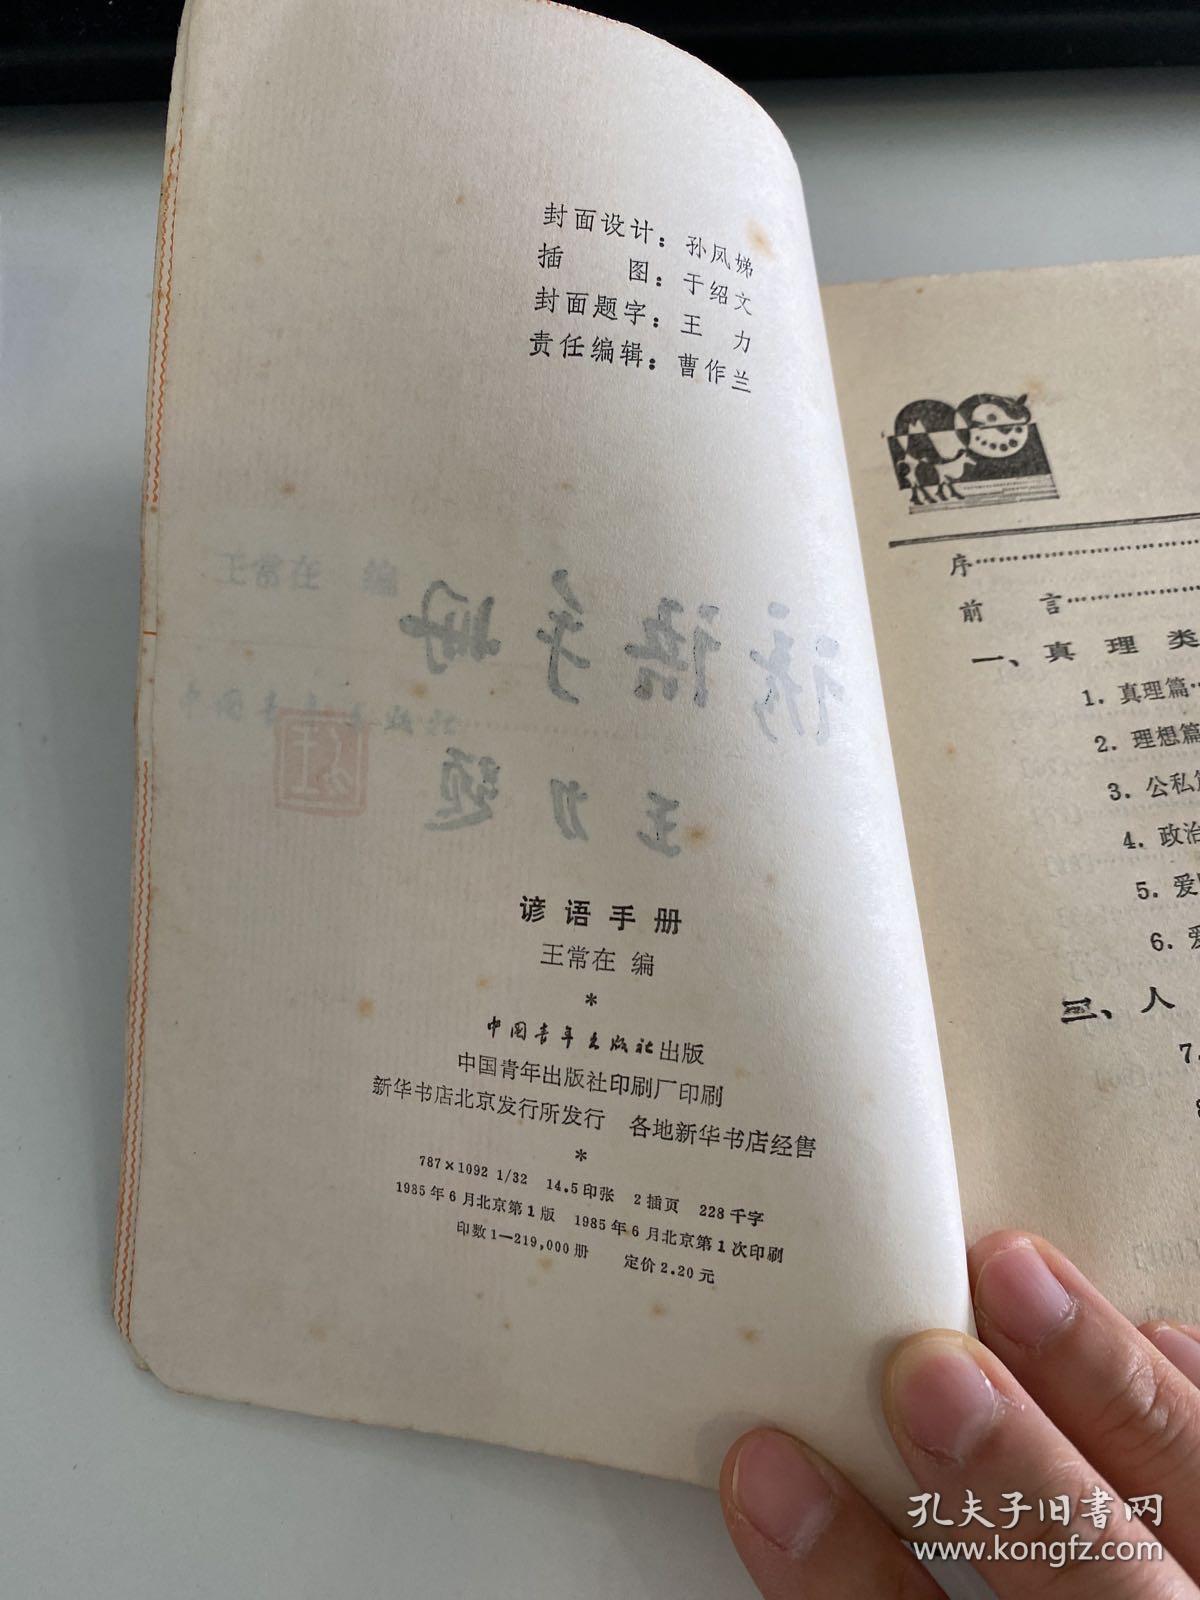 封面设计：孙凤娣
插　　图：于绍文
封面题字：王　力
责任编辑：曹作兰
王常在 编
谚语手册
中国青年出版社
王力题
谚语手册
王常在 编
*
中国青年出版社出版
中国青年出版社印刷厂印刷
新华书店北京发行所发行　各地新华书店经售
*
787×1092 1/32　14.5印张　2插页　228千字
1985年6月北京第1版　1985年6月北京第1次印刷
印数1—219,000册　定价2.20元
序……………………
前　言……………
一、真 理 类
1. 真理篇
2. 理想篇
3. 公私
4. 政治
5. 爱
6.
二、人
7.
孔夫子旧书网
www.kongfz.com